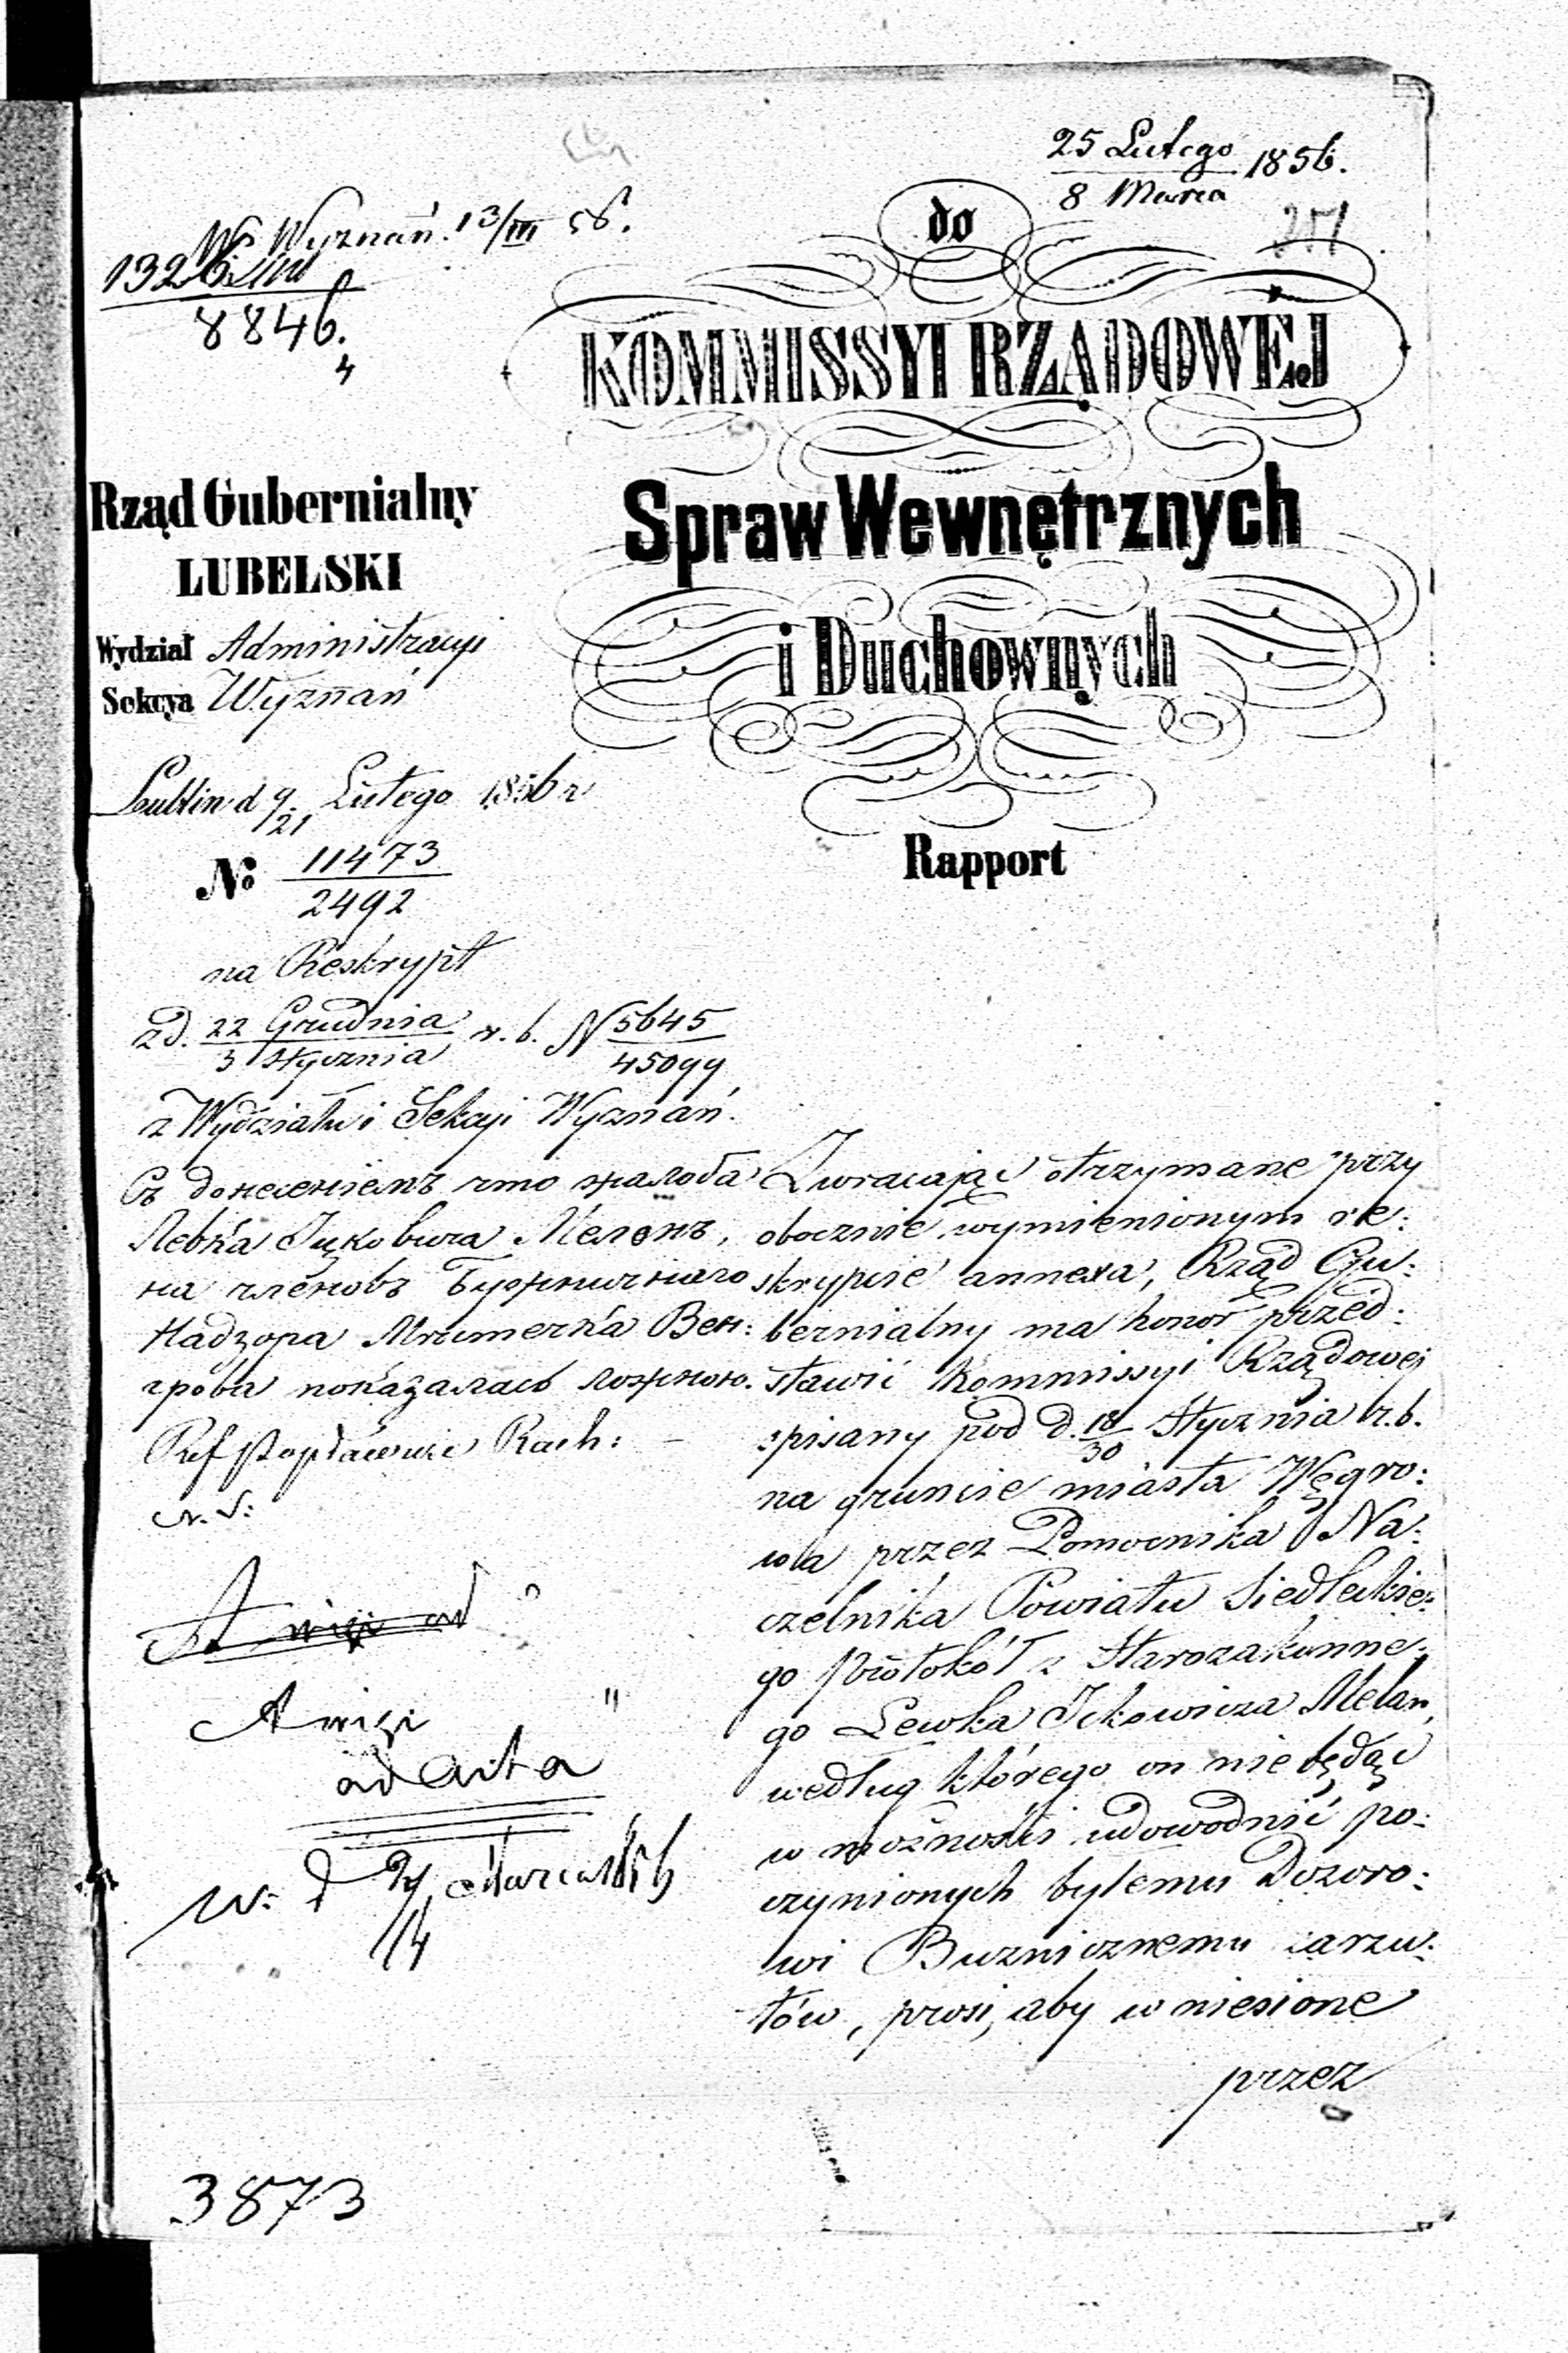 25 Lutego
8 Marca
1856.
W. Wyznań. 13/III 56.
1326
8846.
4
do
KOMMISSYI RZĄDOWÉJ
Spraw Wewnętrznych
i Duchownych
Rapport
Rząd Gubernialny
LUBELSKI
Wydział Administracyi
Sekcya Wyznań
Lublin d 9/21 Lutego 1856 r
№ 11473
2492
na Reskrypt
z d. 22 Grudnia
3 Stycznia
r. b. N 5645
45099
z Wydziału i Sekcyi Wyznań.
Съ донесеніемъ что жалоба
Левка Ицковича Меленъ,
на членовъ Бужничнаго
Надзора Мѣстечка Вен:
грова показалась ложною.
Ref Popławski Rach: –
Zwracając otrzymane przy
obocznie wymienionym re:
skrypcie annexa, Rząd Gu:
bernialny ma honor przed:
stawić Kommissyi Rządowej
spisany pod d. 18/30 Stycznia r. b.
na gruncie miasta Węgro:
wa przez Pomocnika Na:
czelnika Powiatu Siedleckie:
go protokół z Starozakonne:
go Lewka Ickowicza Melan,
według którego on nie będąc
w możności udowodnić po:
czynionych byłemu Dozoro:
wi Buznicznemu zarzu:
tów, prosi, aby wniesione
przez
ad acta
W. d 2/14 Marca 1856
3873